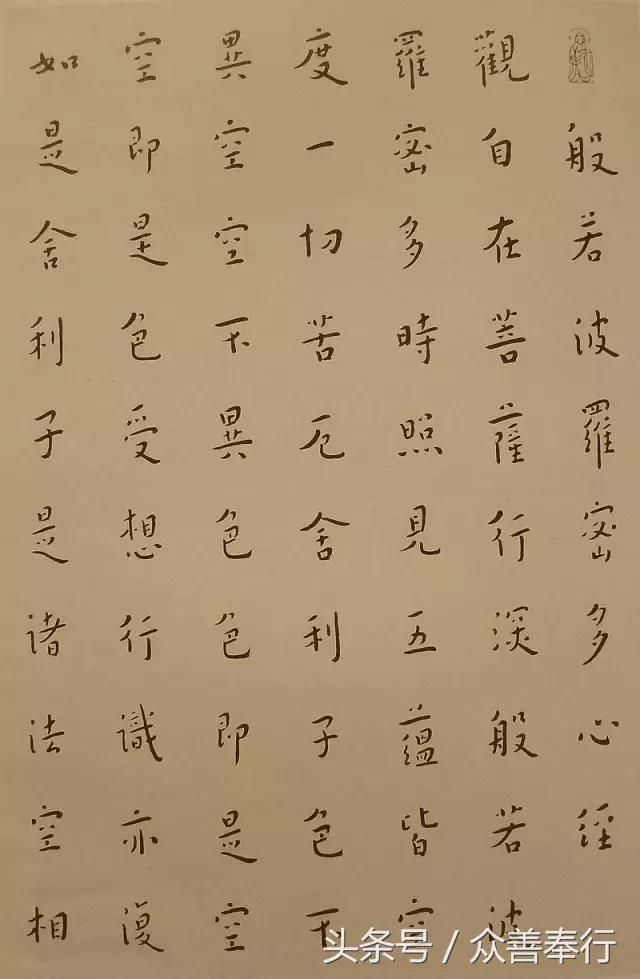 般若波羅密多心經
觀自在菩薩行深般若波
羅密多時照見五蘊皆空
度一切苦厄舍利子色不
異空空不異色色即是空
空即是色受想行識亦復
如是舍利子是諸法空相
头条号 / 众善奉行